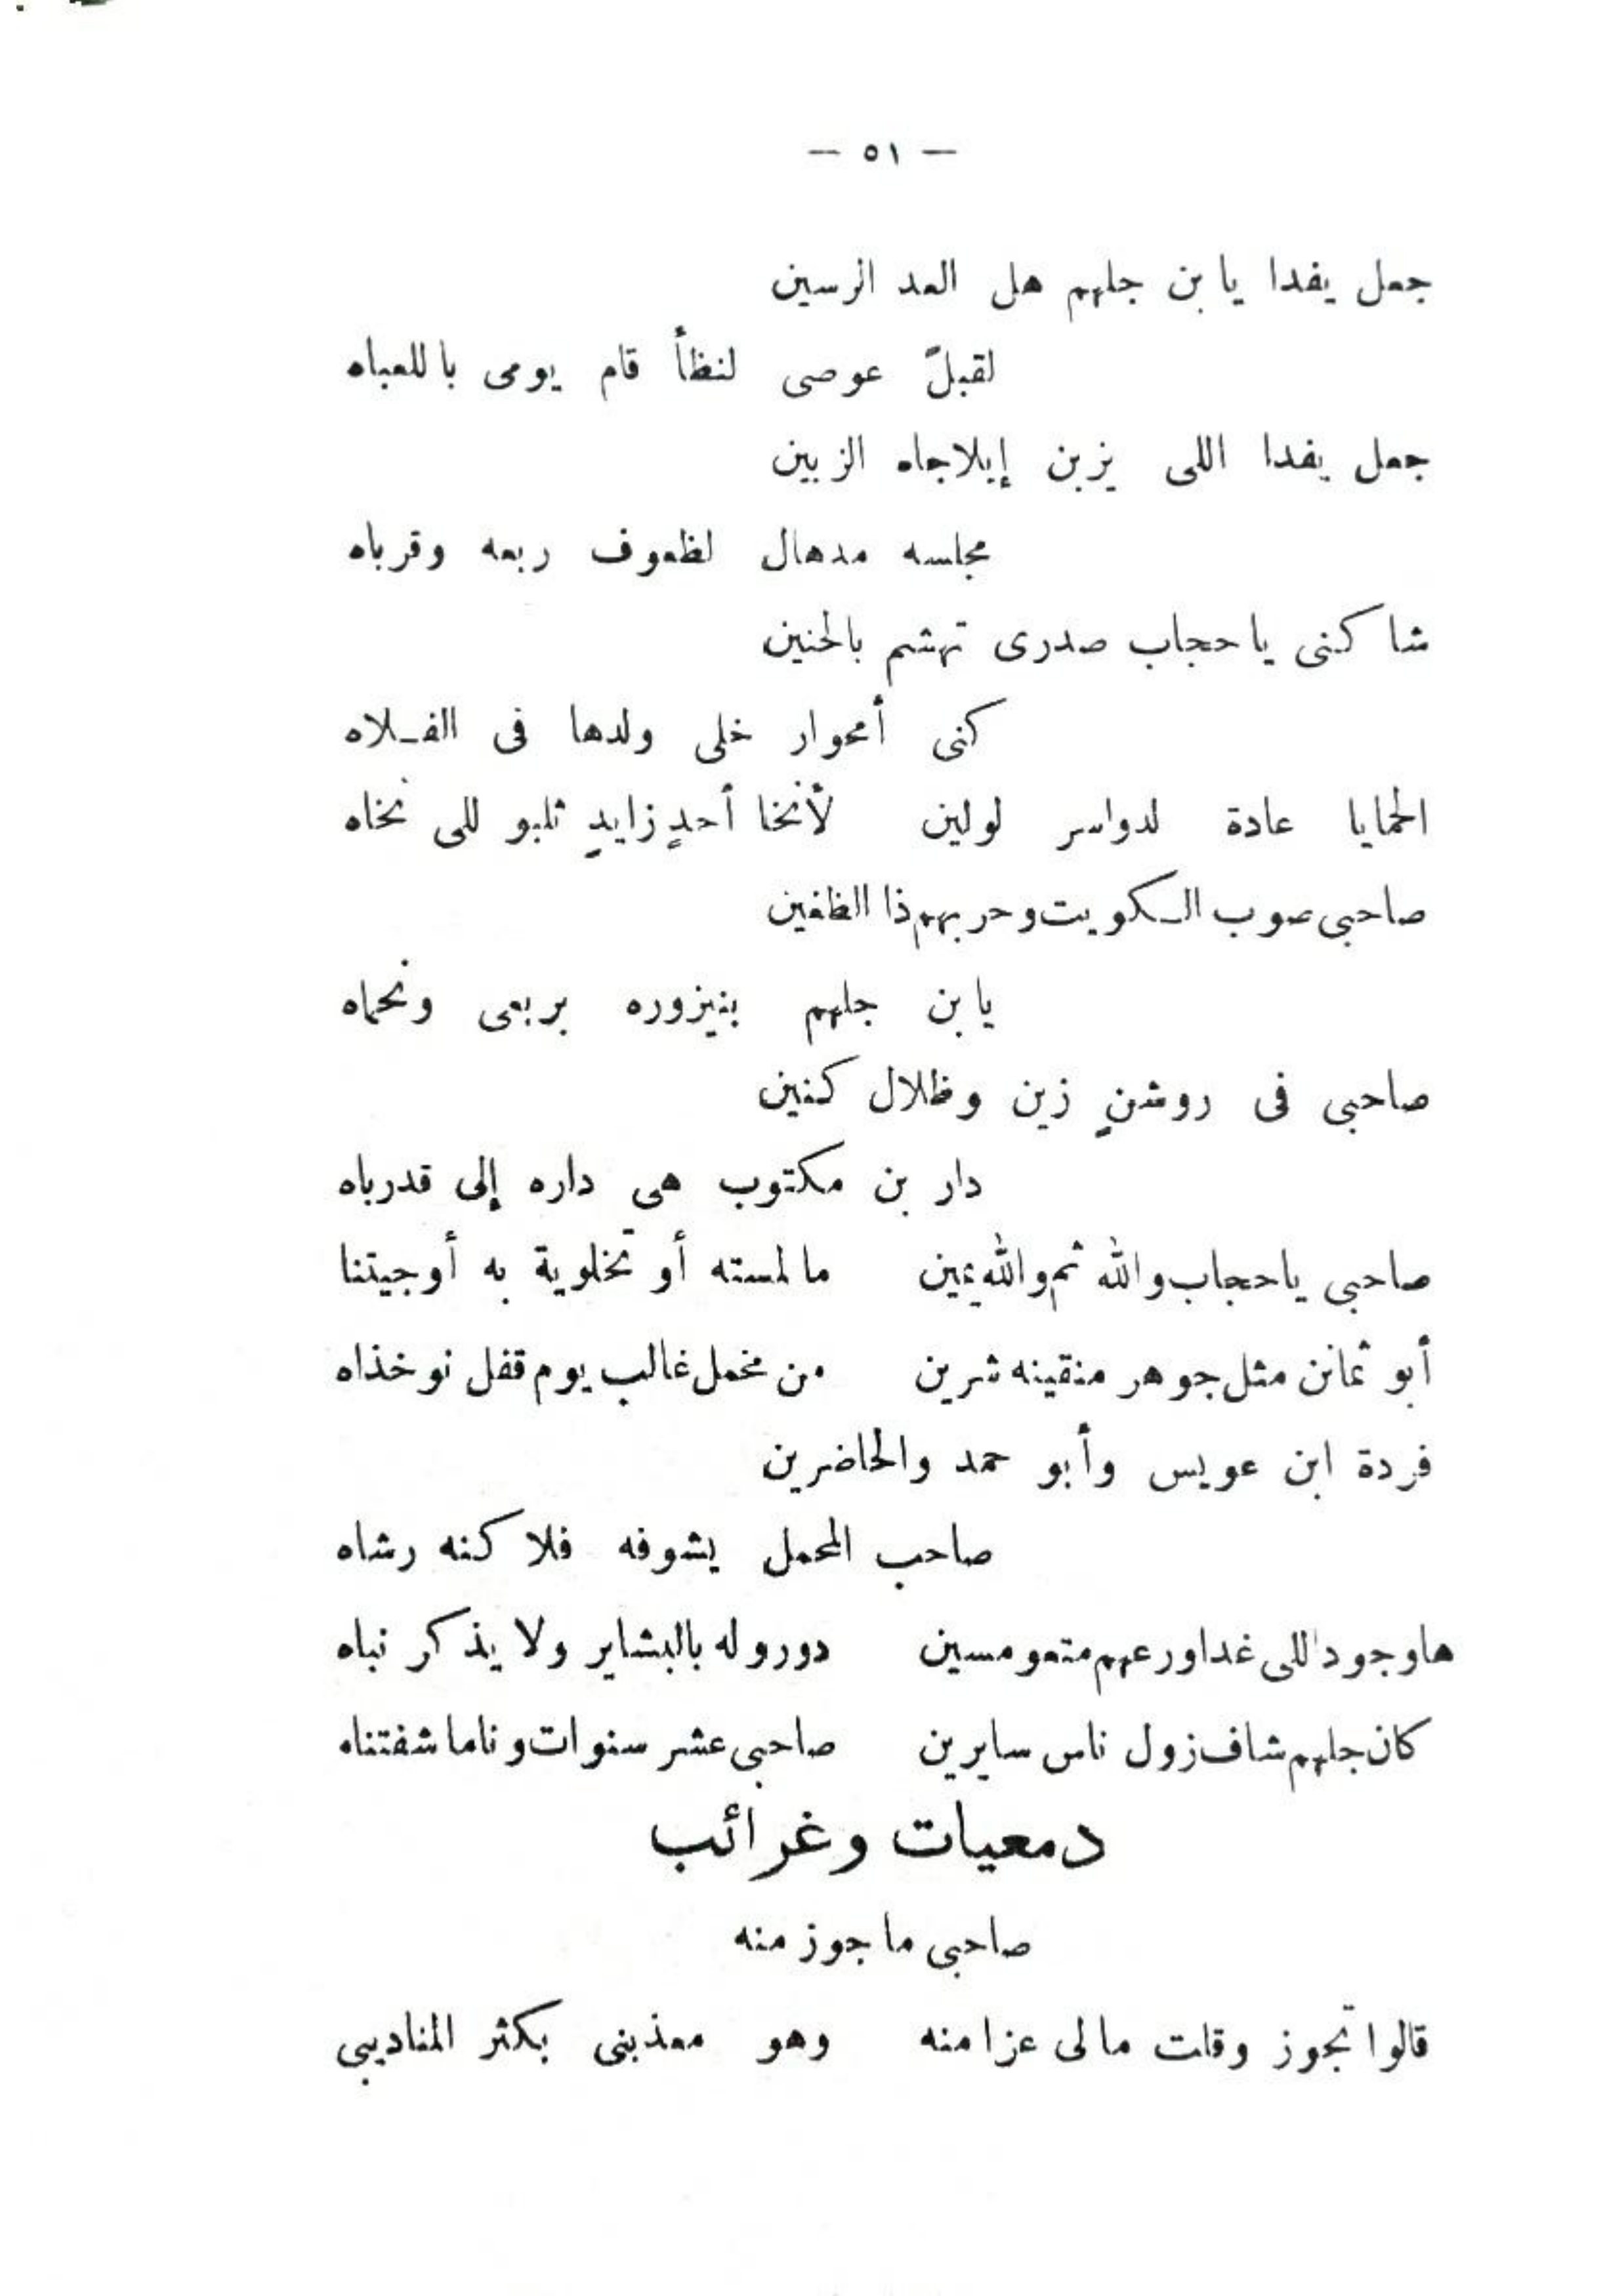 — ٥١ —
جمل يفدا يا بن جلهم هل العد الرسين
لقبلّ عوصى لنظأ قام يومى باللعباه
جمل يفدا اللى يزبن إيلاجاه الزبين
مجلسه مدهال لظعوف ربعه وقرباه
شاكنى يا حجاب صدرى تهشم بالحنين
كنى أمحوار خلى ولدها فى الفـلاه
الحمايا عادة لدواسر لولين لأنخا أحدٍ زايدٍ تلبو للى نخاه
صاحبى صوب الـكويت وحربهم ذا الظفين
يا بن جلهم بنيزوره بربعى ونحماه
صاحبى فى روشنٍ زين وظلال كنين
دار بن مكتوب هى داره إلى قدرباه
صاحبى ياحجاب والله ثم والله يمين ما لمسته أو تخلوية به أوجيتنا
أبو ثمانن مثل جوهر منقينه شرين من مخمل غالب يوم قفل نوخذاه
فردة ابن عويس وأبو حمد والحاضرين
صاحب المحمل يشوفه فلا كنه رشاه
هاوجود اللى غداور عهم متعومسين دوروله بالبشاير ولا يذكر نباه
كان جلهم شاف زول ناس سايرين صاحبى عشر سنوات وناما شفتناه
دمعيات وغرائب
صاحبى ما جوز منه
قالوا تجوز وقلت مالى عزا منه وهو معذبنى بكثر المناديبى